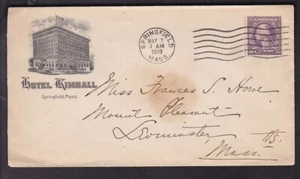 SPRINGFIELD
MAY 7
1 AM
1919
MASS.
HOTEL KIMBALL
Springfield, Mass.
Miss Frances S. Howe
Mount Pleasant
Leominster,
Mass.